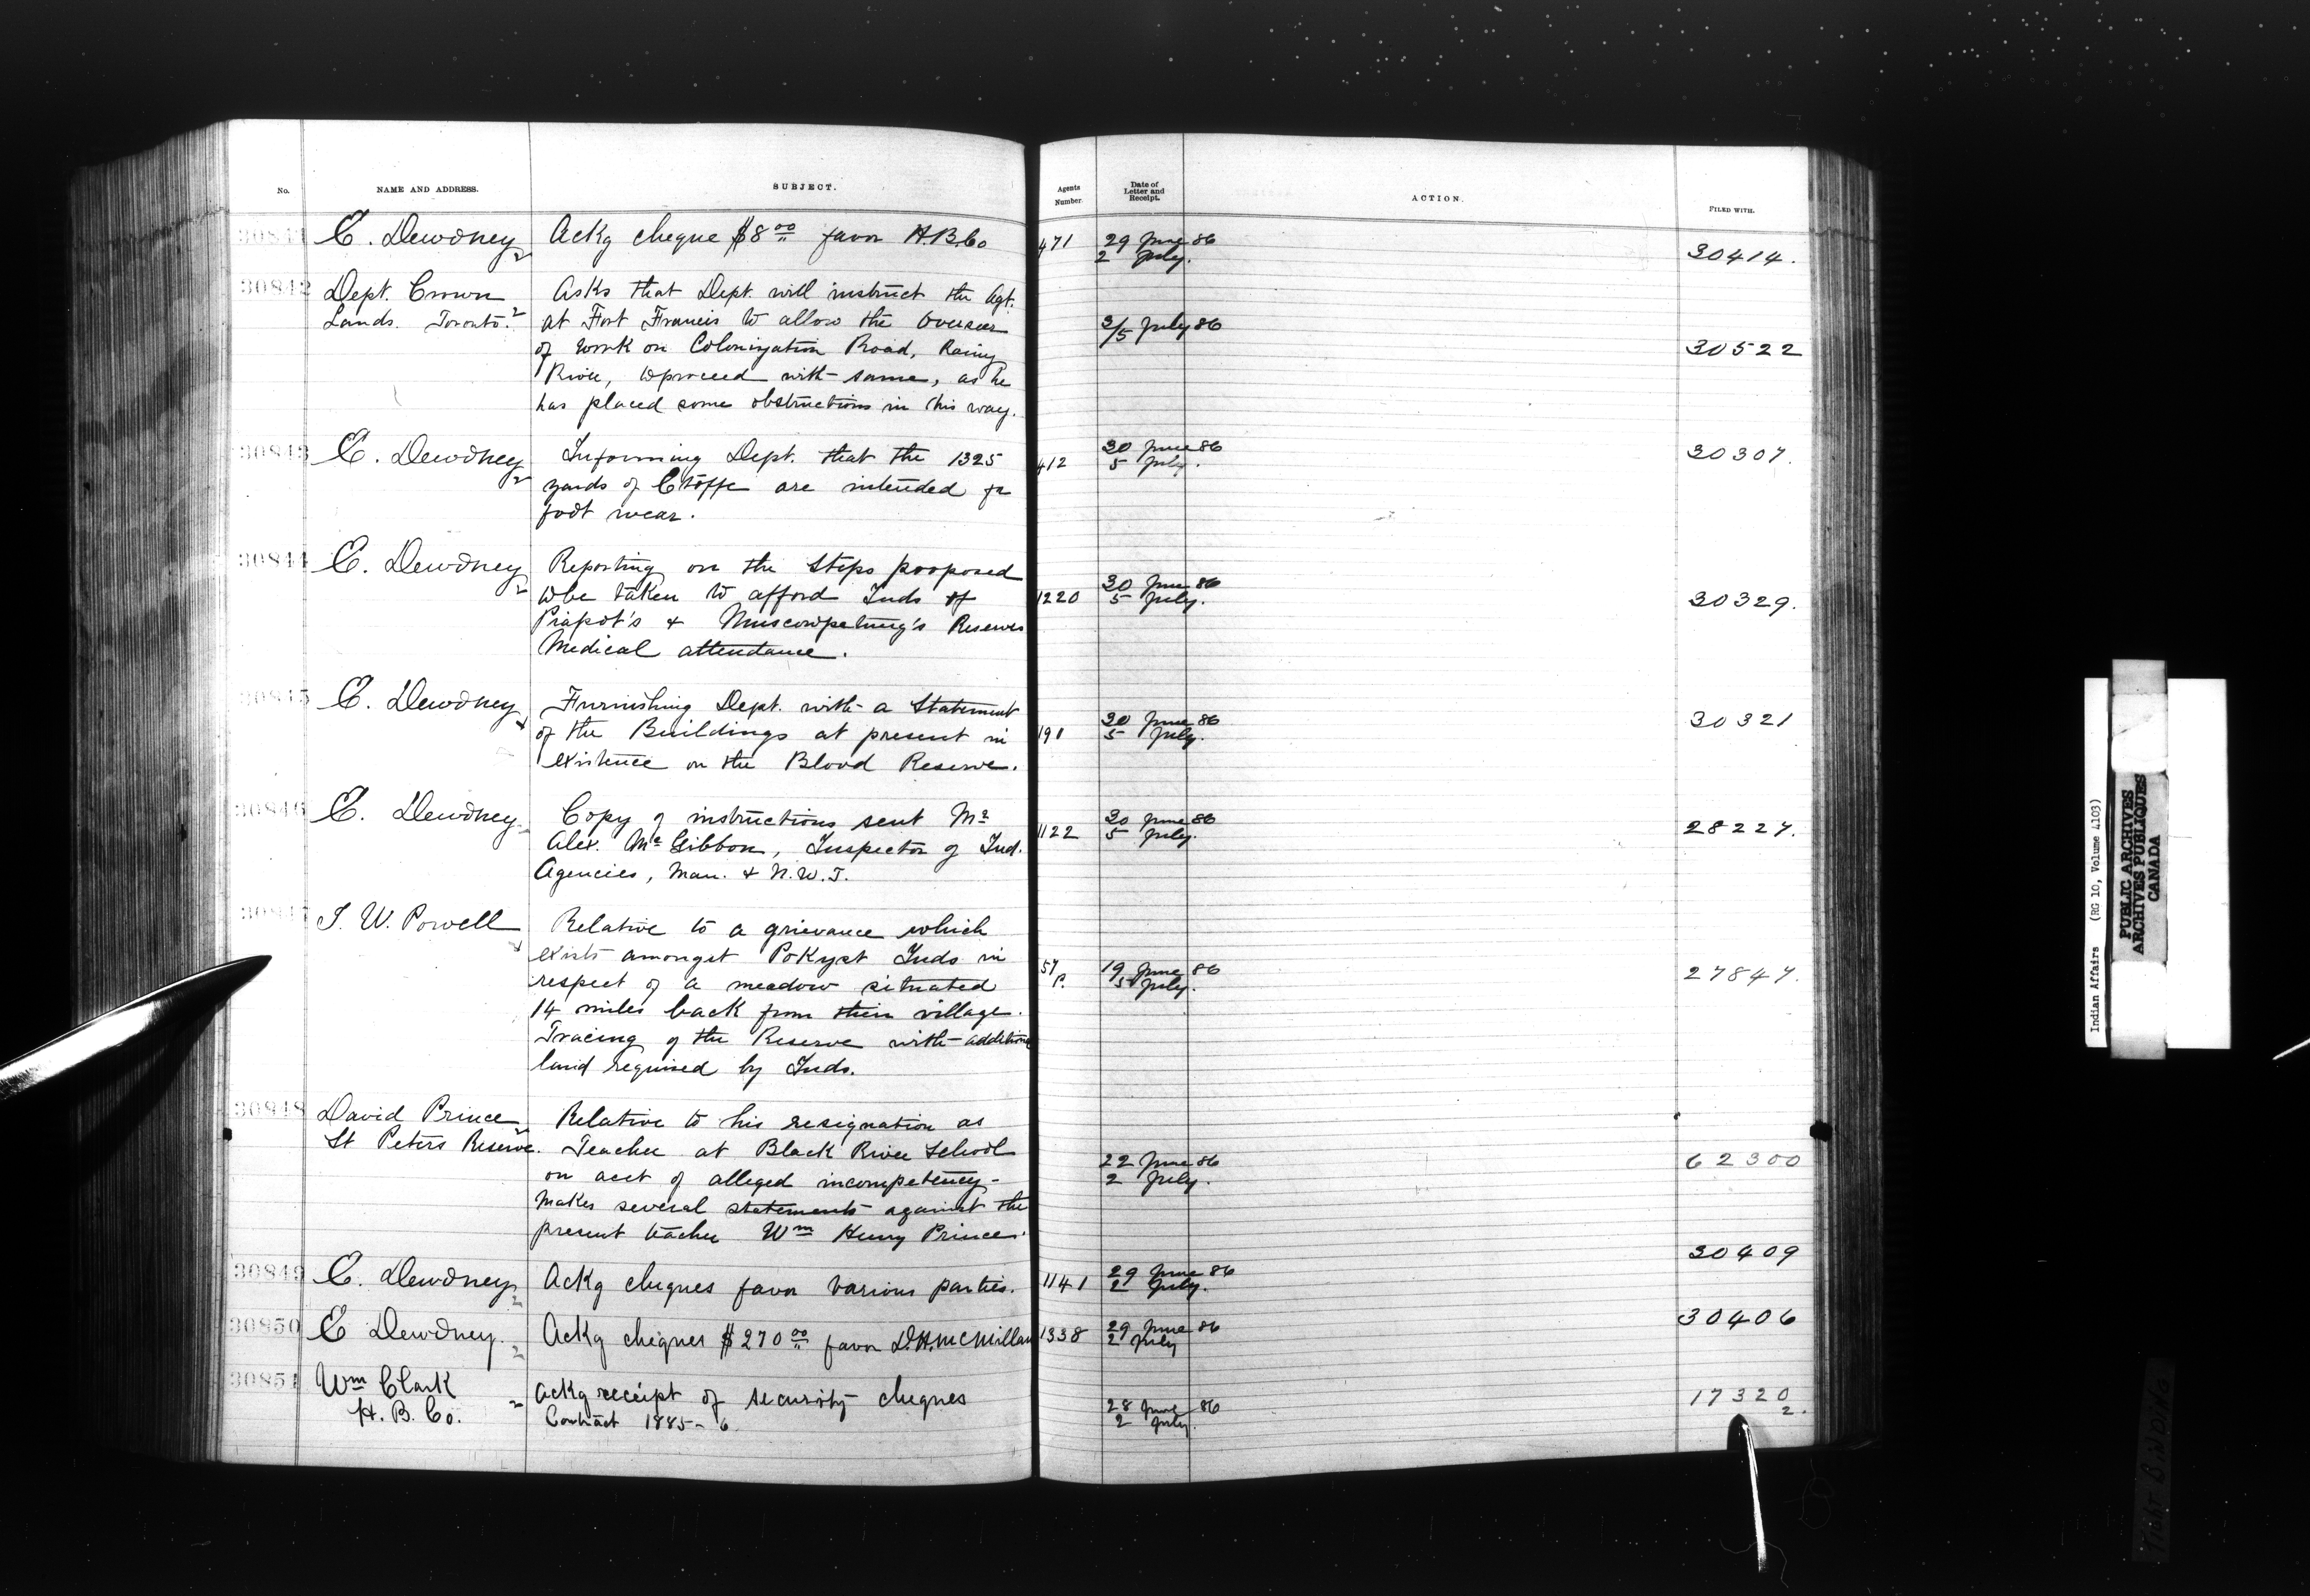 No. NAME AND ADDRESS. SUBJECT. Agents Number. Date of Letter and Receipt. ACTION. FILED WITH.
30841 E. Dewdney Ackg cheque $8 00 favor H.B.Co 471 29 June 86 30414.
2 2 July.
30842 Dept. Crown Asks that Dept. will instruct the Agt.
Lands. Toronto. 2 at Fort Francis to allow the Overseer 3/5 July 86
of work on Colonization Road, Rainy 30522
River, to proceed with same, as he
has placed some obstructions in his way.
30843 E. Dewdney Informing Dept. that the 1325 412 30 June 86 30307.
2 yards of Etoffe are intended for 5 July.
foot wear.
30844 E. Dewdney Reporting on the steps proposed 30 June 86
2 to be taken to afford Inds of 1220 5 July. 30329.
Piapot's & Muscowpetung's Reserves
Medical attendance.
30845 E. Dewdney Furnishing Dept. with a Statement 30 June 86 30321
of the Buildings at present in 191 5 July.
existence on the Blood Reserve.
30846 E. Dewdney Copy of instructions sent Mr 30 June 86 28227.
Alex. McGibbon, Inspector of Ind. 1122 5 July.
Agencies, Man. & N.W.T.
30847 I. W. Powell Relative to a grievance which
exists amongst Pokyst Inds in 57 P. 19 June 86 27847.
respect of a meadow situated 5 July.
14 miles back from their village.
Tracing of the Reserve with additional
land required by Inds.
30848 David Prince Relative to his resignation as
St Peters Reserve. Teacher at Black River School 22 June 86 62300
on acct of alleged incompetency - 2 July.
makes several statements against the
present teacher Wm Henry Prince.
30849 E. Dewdney Ackg cheques favor various parties. 1141 29 June 86 30409
2 2 July.
30850 E Dewdney. Ackg cheques $270 00 favor D.H. McMillan 1338 29 June 86 30406
2 2 July
30851 Wm Clark Ackg receipt of security cheques 28 June 86 17320
H. B. Co. 2 Contract 1885-6 2 July. 2.
Indian Affairs (RG 10, Volume 4103)
PUBLIC ARCHIVES
ARCHIVES PUBLIQUES
CANADA